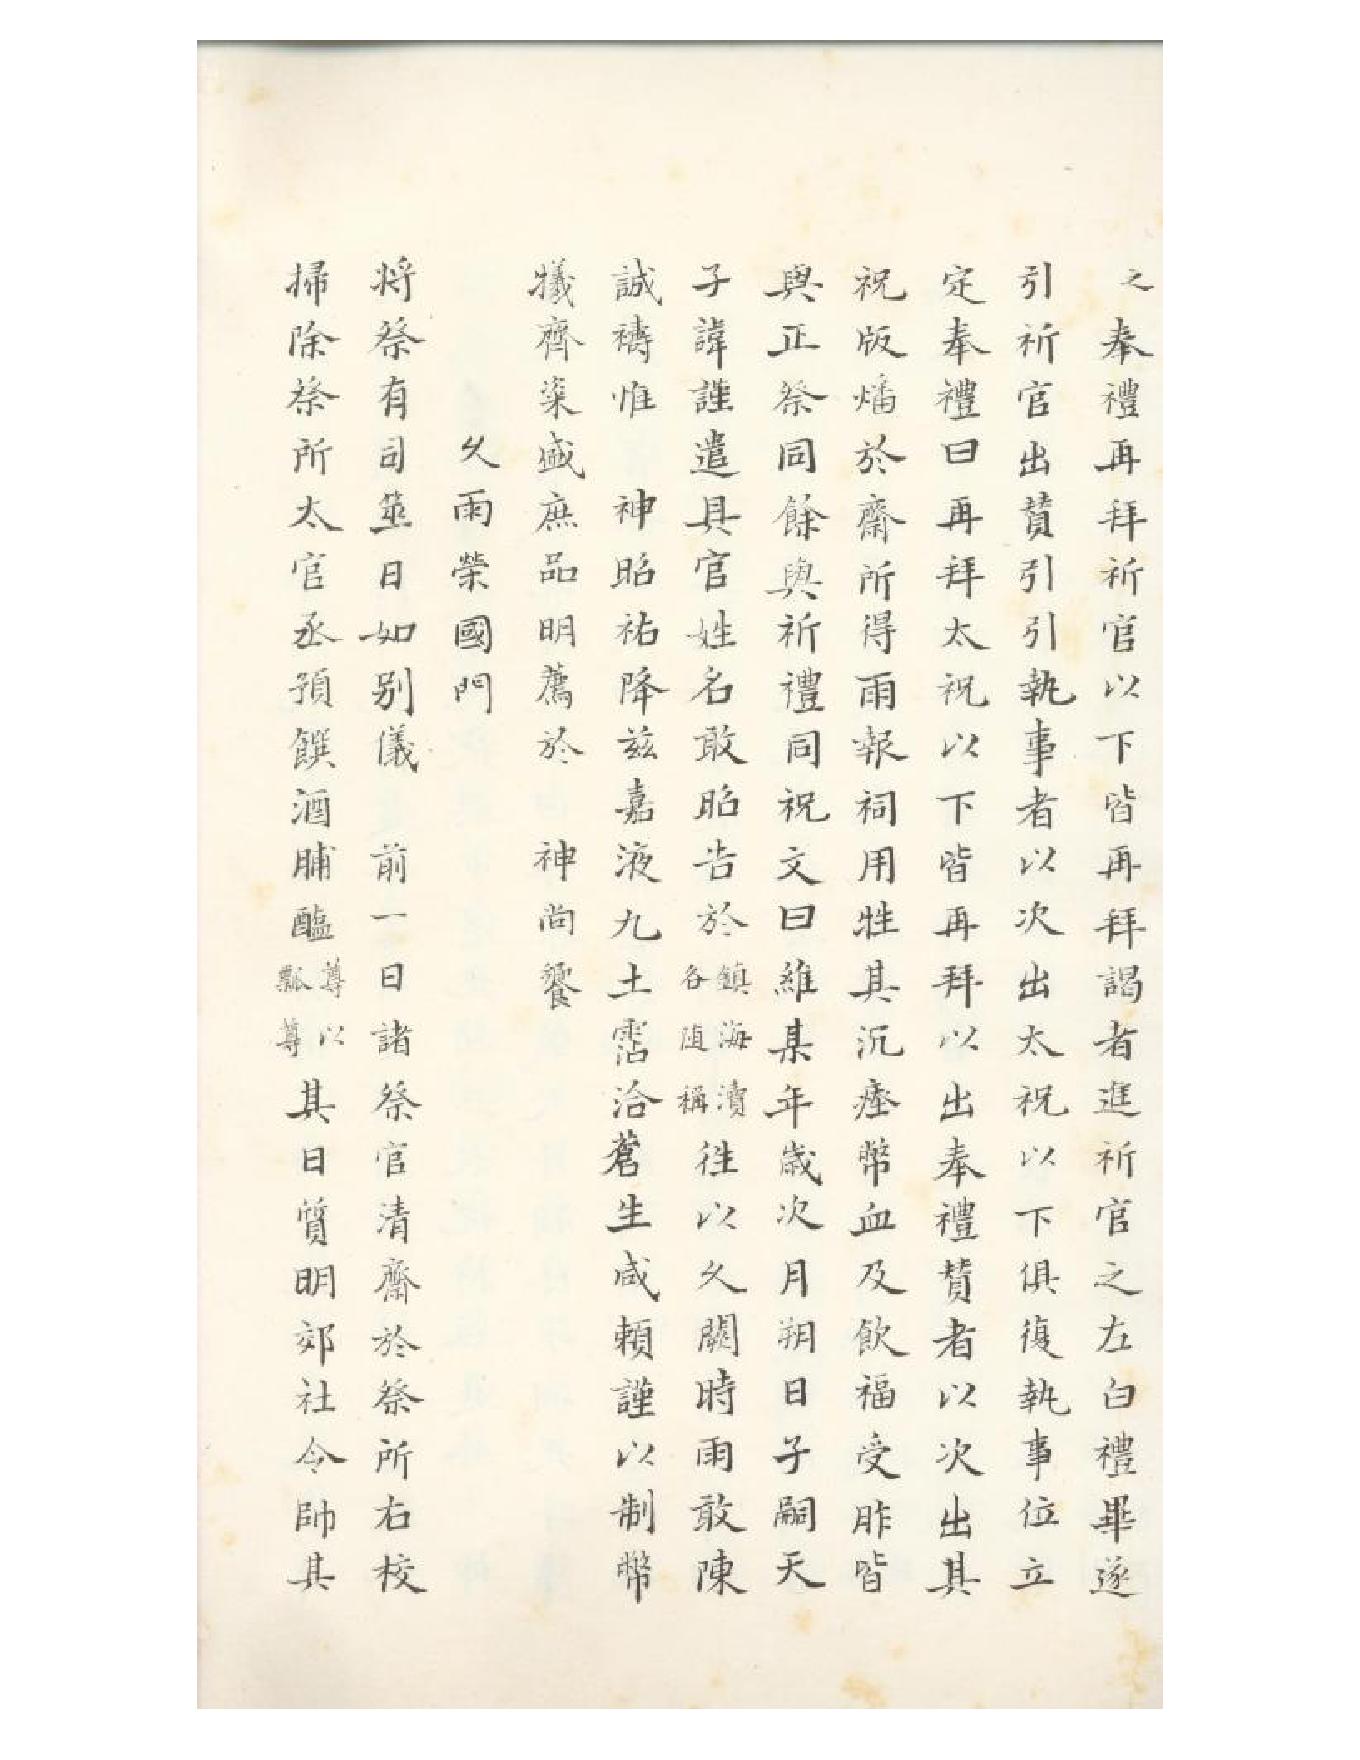 之奉禮再拜祈官以下皆再拜謁者進祈官之左白禮畢遂
引祈官出賛引引執事者以次出太祝以下俱復執事位立
定奉禮曰再拜太祝以下皆再拜以出奉禮賛者以次出其
祝版燔於齋所得雨報祠用牲其沉瘞幣血及飲福受胙皆
與正祭同餘與祈禮同祝文曰維某年歲次月朔日子嗣天
子諱謹遣具官姓名敢昭告於鎮海瀆各随稱徃以久闕時雨敢陳
誠禱惟 神昭祐降兹嘉液九土霑洽蒼生咸頼謹以制幣
犧齊粢盛庶品明薦於 神尚饗
久雨禜國門
将祭有司筮日如别儀 前一日諸祭官清齋於祭所右校
掃除祭所太官丞預饌酒脯醢蓴以瓢蓴其日質明郊社令帥其